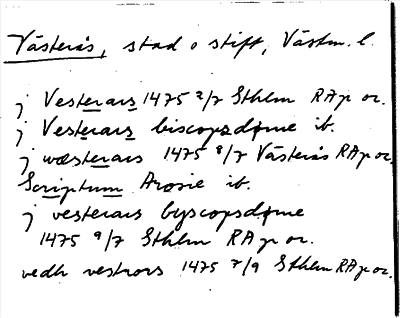 Västerås, stad o stift, Västm. l.
j Vesterars 1475 2/7 Sthlm RAp or.
j Vesterars biscopsdøme ib.
j wæsterars 1475 8/7 Västerås RAp or.
Scriptum Arosie ib.
j vesterars byscopsdøme
1475 9/7 Sthlm RAp or.
vedh vestrors 1475 7/9 Sthlm RAp or.